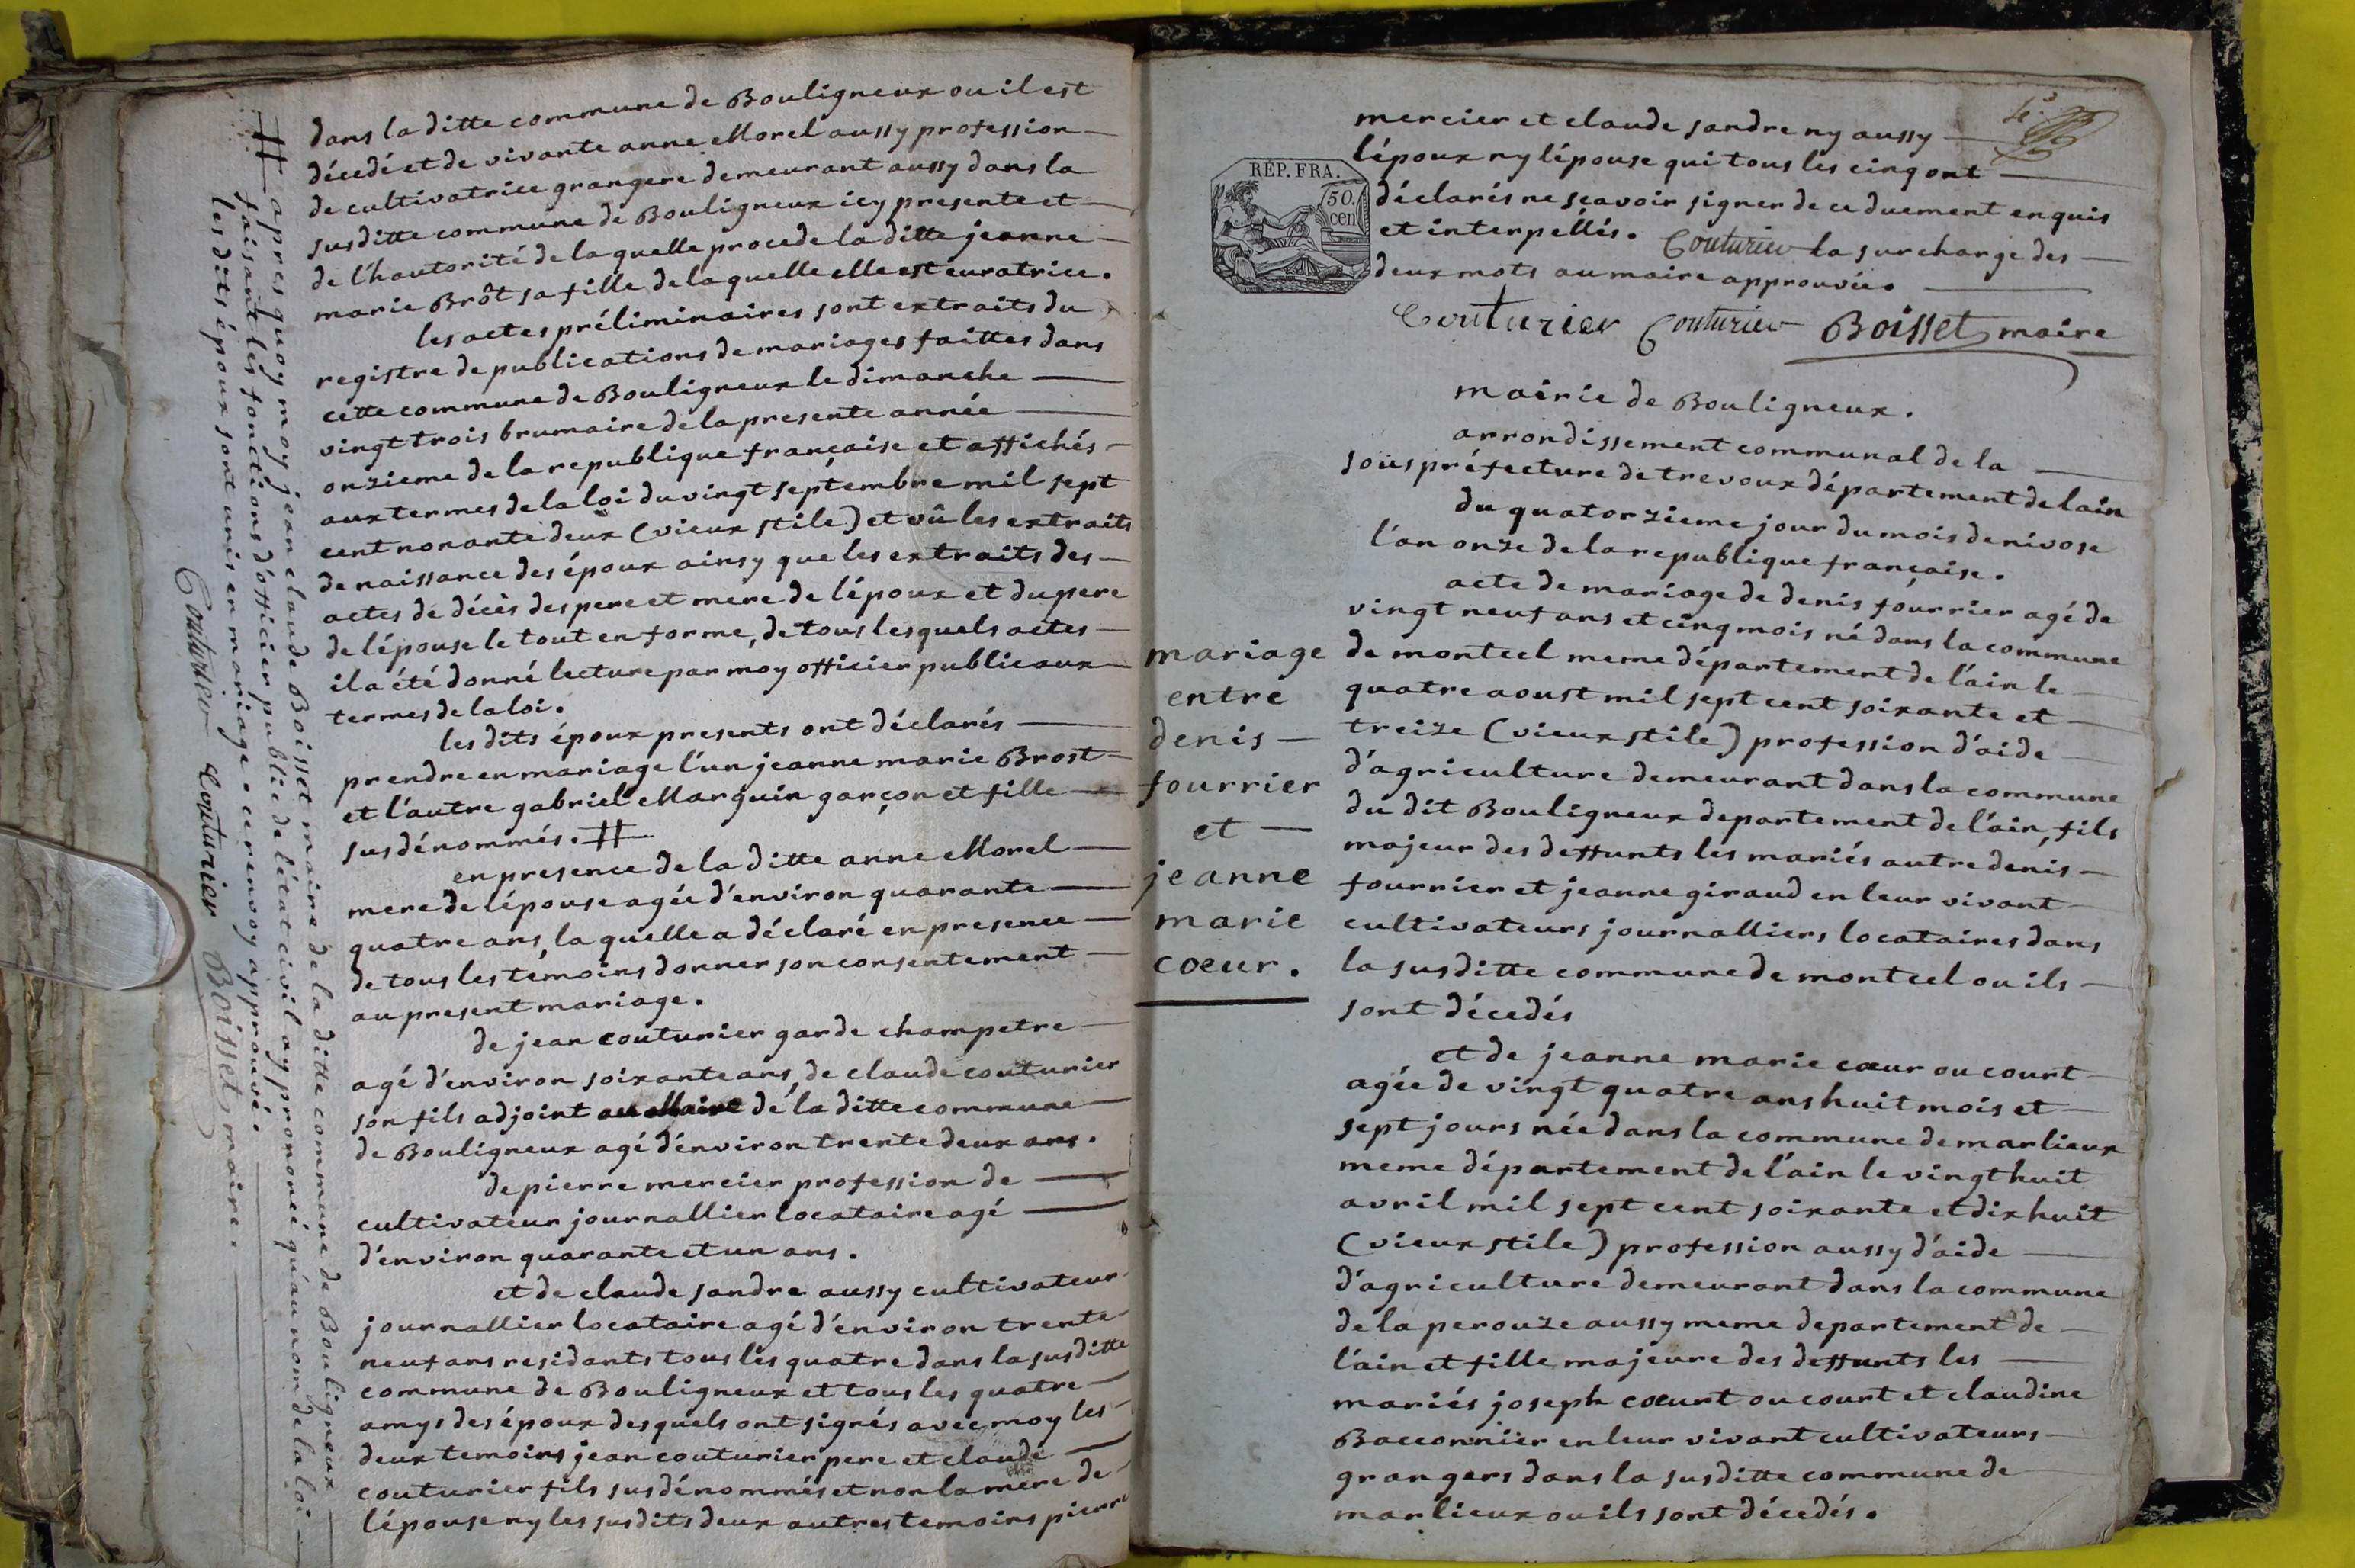 dans la ditte commune de Bouligneux ou il est
décedé et de vivante anne Morel aussy profession
de cultivatrice grangere demeurant aussy dans la
susditte commune de Bouligneux icy presente et
de l'hautorité de laquelle procede la ditte jeanne
marie Brôt sa fille de laquelle elle est curatrice.
les actes préliminaires sont extraits du
registre de publications de mariages faittes dans
cette commune de Bouligneux le dimanche
vingt trois brumaire de la presente année
onzieme de la republique française et affichés
aux termes de la loi du vingt septembre mil sept
cent nonante deux (vieux stile) et vû les extraits
de naissance des époux ainsy que les extraits des
actes de décès des pere et mere de l'époux et du pere
de l'épouse le tout en forme, de tous lesquels actes
il a été donné lecture par moy officier public aux
termes de la loi.
les dits époux presents ont déclarés
prendre en mariage l'un jeanne marie Brost
et l'autre gabriel Marguin garçon et fille
susdénommés. #
en presence de la ditte anne Morel
mere de l'épouse agée d'environ quarante
quatre ans, la quelle a déclaré en presence
de tous les témoins donner son consentement
au present mariage.
de jean couturier garde champetre
agé d'environ soixante ans, de claude couturier
son fils adjoint au Maire de la ditte commune
de Bouligneux agé d'environ trente deux ans.
de pierre mercier profession de
cultivateur journallier locataire agé
d'environ quarante et un ans.
et de claude sandre aussy cultivateur
journallier locataire agé d'environ trente
neuf ans residants tous les quatre dans la susditte
commune de Bouligneux et tous les quatre
amys des époux desquels ont signés avec moy les
deux temoins jean couturier pere et claude
couturier fils susdénommés et non la mere de
l'épouse ny les susdits deux autres temoins pierre
# apres quoy moy jean claude Boisset maire de la ditte commune de Bouligneux
faisant les fonctions d'officier public de l'état civil ay prononcé qu'au nom de la loi
les dits époux sont unis en mariage. ce renvoy approuvé.
Couturier Couturier Boisset maire.
mercier et claude sandre ny aussy
l'époux ny l'épouse qui tous les cinq ont
déclarés ne sçavoir signer de ce duement enquis
et interpellés. Couturier la surcharge des
deux mots au maire approuvée.
REP. FRA.
50.
cen
Couturier Couturier Boisset maire
mairie de Bouligneux.
arrondissement communal de la
sous préfecture de trevoux département de lain
du quatorzieme jour du mois de nivose
l'an onze de la republique française.
mariage
entre
denis
fourrier
et
jeanne
marie
cœur.
acte de mariage de denis fourrier agé de
vingt neuf ans et cinq mois né dans la commune
de montcel meme département de l'ain le
quatre aoust mil sept cent soixante et
treize (vieux stile) profession d'aide
d'agriculture demeurant dans la commune
du dit Bouligneux departement de l'ain, fils
majeur des deffunts les mariés autre denis
fourrier et jeanne giraud en leur vivant
cultivateurs journalliers locataires dans
la susditte commune de montcel ou ils
sont décedés
et de jeanne marie cœur ou court
agée de vingt quatre ans huit mois et
sept jours née dans la commune de marlieux
meme département de l'ain le vingt huit
avril mil sept cent soixante et dix huit
(vieux stile) profession aussy d'aide
d'agriculture demeurant dans la commune
de la perouze aussy meme departement de
l'ain et fille majeure des deffunts les
mariés joseph cœurt ou court et claudine
Bacconnier en leur vivant cultivateurs
grangers dans la susditte commune de
marlieux ou ils sont décedés.